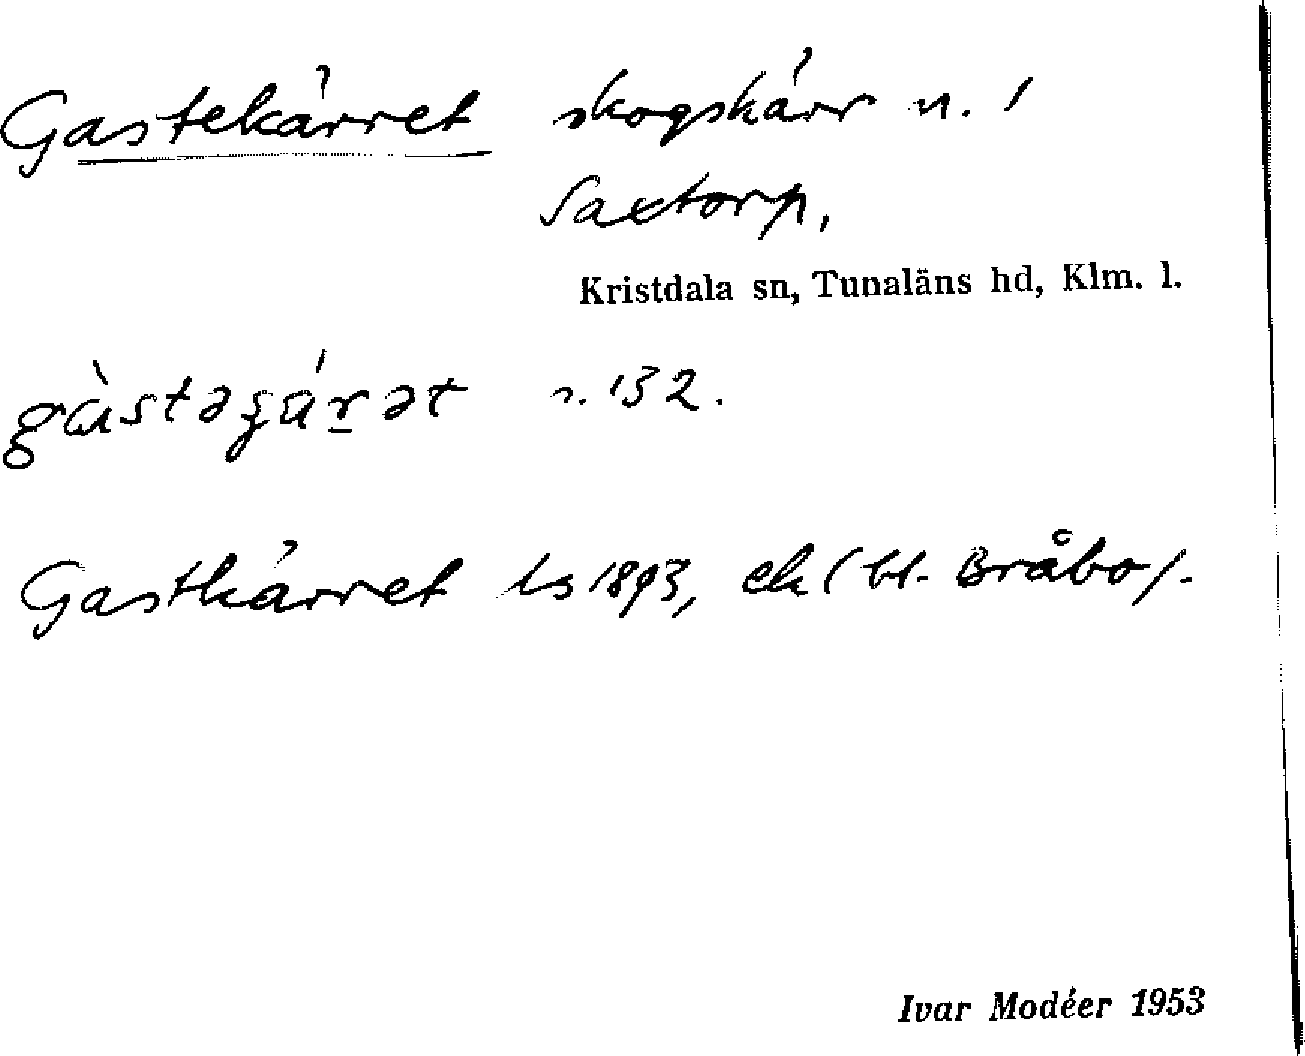 Gastekärret skogskärr n. I
Saxtorp,
Kristdala sn, Tunaläns hd, Klm. l.
132.
Gastkärret ls 1893, ek (bl. Bråbo).
Ivar Modéer 1953